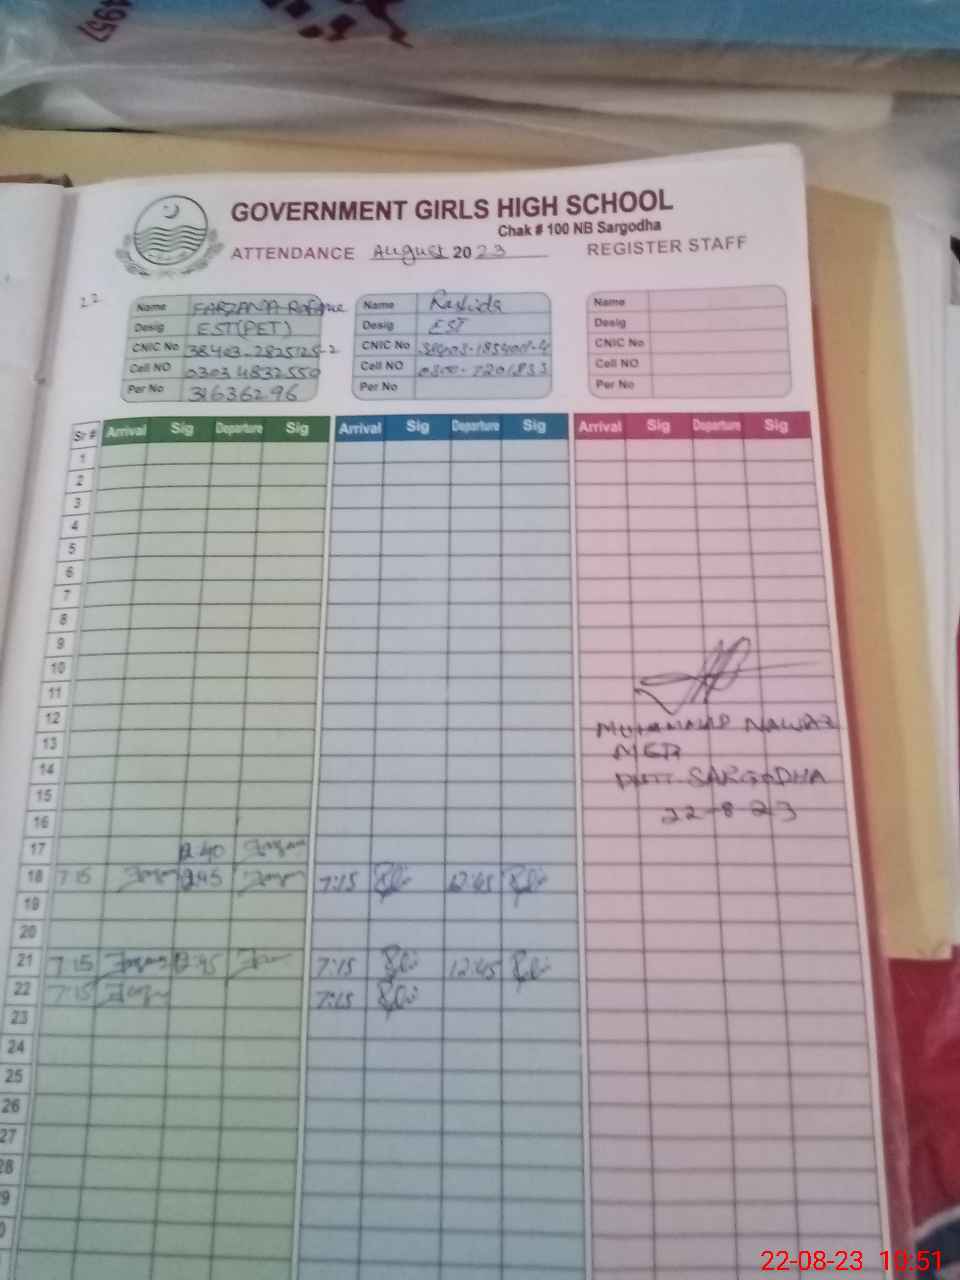 4957
GOVERNMENT GIRLS HIGH SCHOOL
Chak # 100 NB Sargodha
ATTENDANCE August 2023 REGISTER STAFF
22
Name FARZANA
Desig EST(PET)
CNIC No 38403-2825125-2
Cell NO 0303 4832550
Per No 31636296
Name Rashida
Desig EST
CNIC No
Cell NO 0300-7201833
Per No
Name
Desig
CNIC No
Cell NO
Per No
Sr # Arrival Sig Departure Sig Arrival Sig Departure Sig Arrival Sig Departure Sig
1
2
3
4
5
6
7
8
9
10
11
12
MUHAMMAD NAWAZ
13
MEA
14
SARGODHA
15
22-8-23
16
17 12:40
18 7:15 12:45 7:15 12:45
19
20
21 7:15 12:45 7:15 12:45
22 7:15 7:15
23
24
25
26
27
28
9
0
22-08-23 10:51